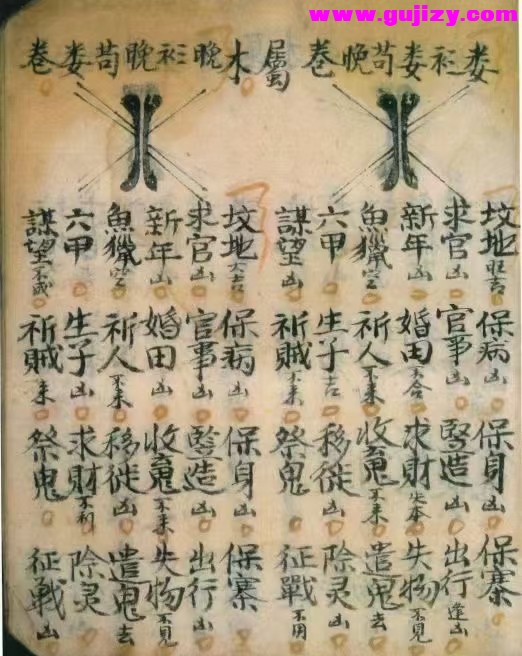 www.gujizy.com
娄衫娄苟晚卷
屬木
晚衫晚苟娄卷
坟地旺吉 保病凶 保身凶 保寨
求官凶 官事凶 竪造凶 出行逢凶
新年凶 婚田不合 求財失本 失物不見
魚獵空 祈人不来 收不来 遣鬼去
六甲 生子吉 移徙凶 除灵凶
謀望凶 祈賊不来 祭鬼 征戰不用
坟地大吉 保病凶 保身凶 保寨
求官凶 官事凶 竪造凶 出行凶
新年凶 婚田凶 收不来 失物不見
魚獵空 祈人不来 移徙凶 遣鬼去
六甲 生子凶 求財不利 除灵
謀望不成 祈賊不来 祭鬼 征戰凶